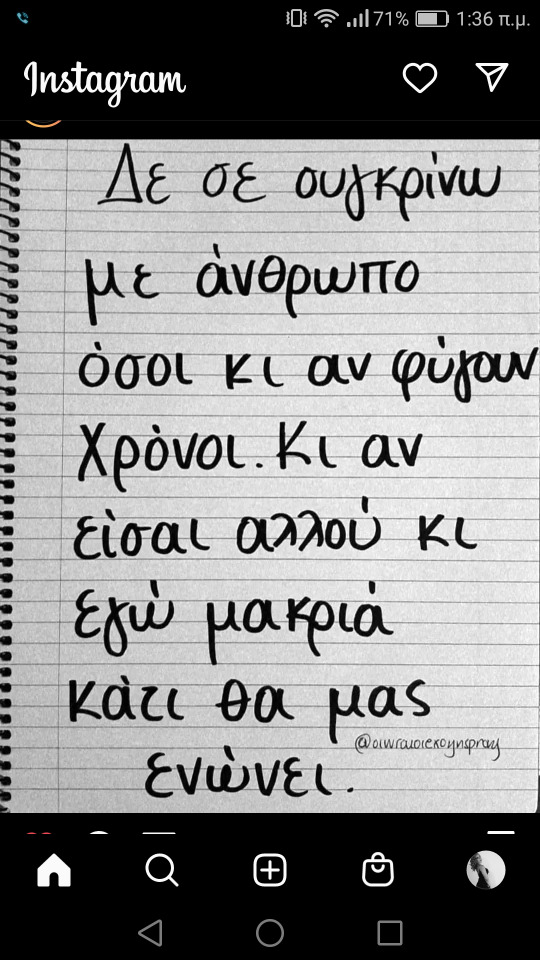 71% 1:36 π.μ.
Instagram
Δε σε συγκρίνω
με άνθρωπο
όσοι κι αν φύγουν
Χρόνοι. Κι αν
είσαι αλλού κι
εγώ μακριά
κάτι θα μας
ενώνει.